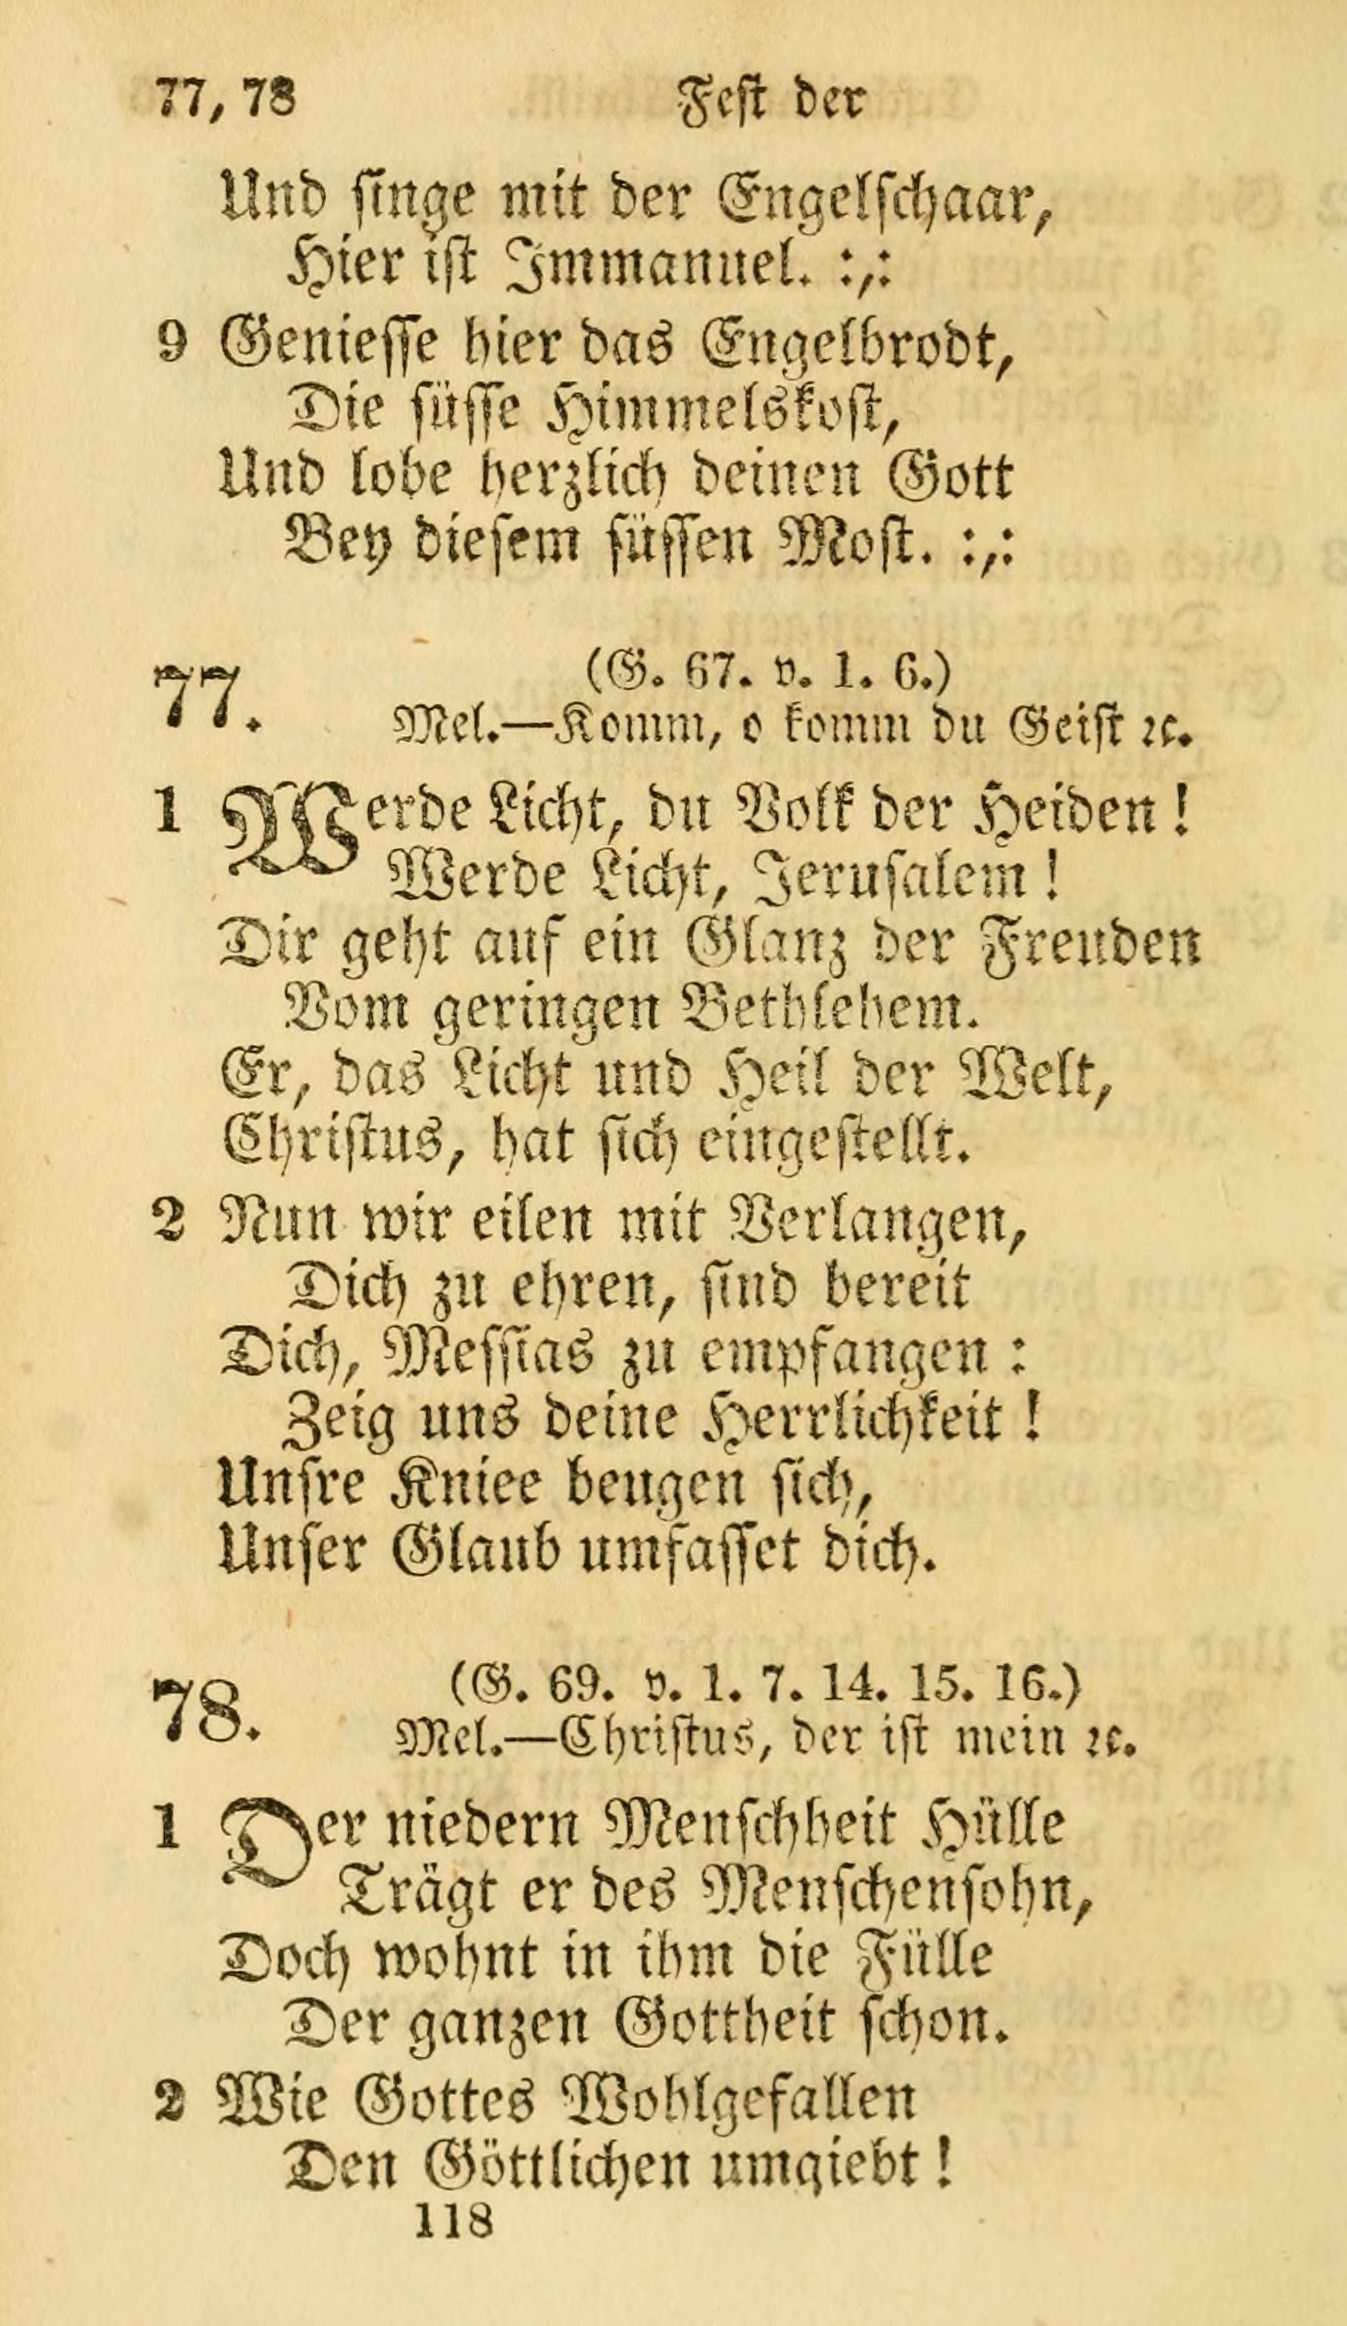 77, 78 Fest der
Und singe mit der Engelschaar,
Hier ist Immanuel. :,:
9 Geniesse hier das Engelbrodt,
Die süsse Himmelskost,
Und lobe herzlich deinen Gott
Bey diesem süssen Most. :,:
77. (G. 67. v. 1. 6.)
Mel.—Komm, o komm du Geist ꝛc.
1 Werde Licht, du Volk der Heiden!
Werde Licht, Jerusalem!
Dir geht auf ein Glanz der Freuden
Vom geringen Bethlehem.
Er, das Licht und Heil der Welt,
Christus, hat sich eingestellt.
2 Nun wir eilen mit Verlangen,
Dich zu ehren, sind bereit
Dich, Messias zu empfangen:
Zeig uns deine Herrlichkeit!
Unsre Kniee beugen sich,
Unser Glaub umfasset dich.
78. (G. 69. v. 1. 7. 14. 15. 16.)
Mel.—Christus, der ist mein ꝛc.
1 Der niedern Menschheit Hülle
Trägt er des Menschensohn,
Doch wohnt in ihm die Fülle
Der ganzen Gottheit schon.
2 Wie Gottes Wohlgefallen
Den Göttlichen umgiebt!
118